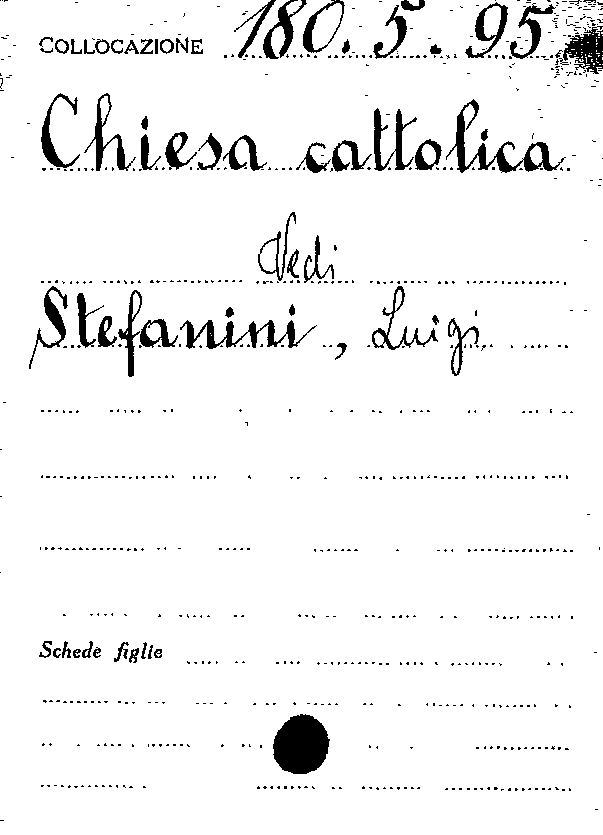 COLLOCAZIONE 180.5.95
Chiesa cattolica
Vedi
Stefanini, Luigi
Schede figlie